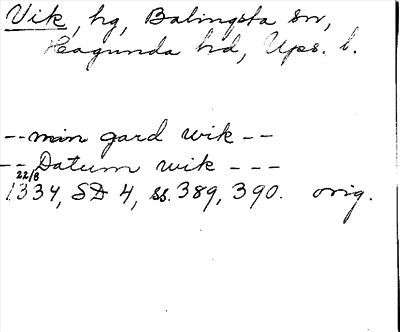 Vik, hg, Balingsta sn,
Hagunda hd, Ups. l.
--min gard wik--
--Datum wik---
22/8
1334, SD 4, ss. 389, 390. orig.